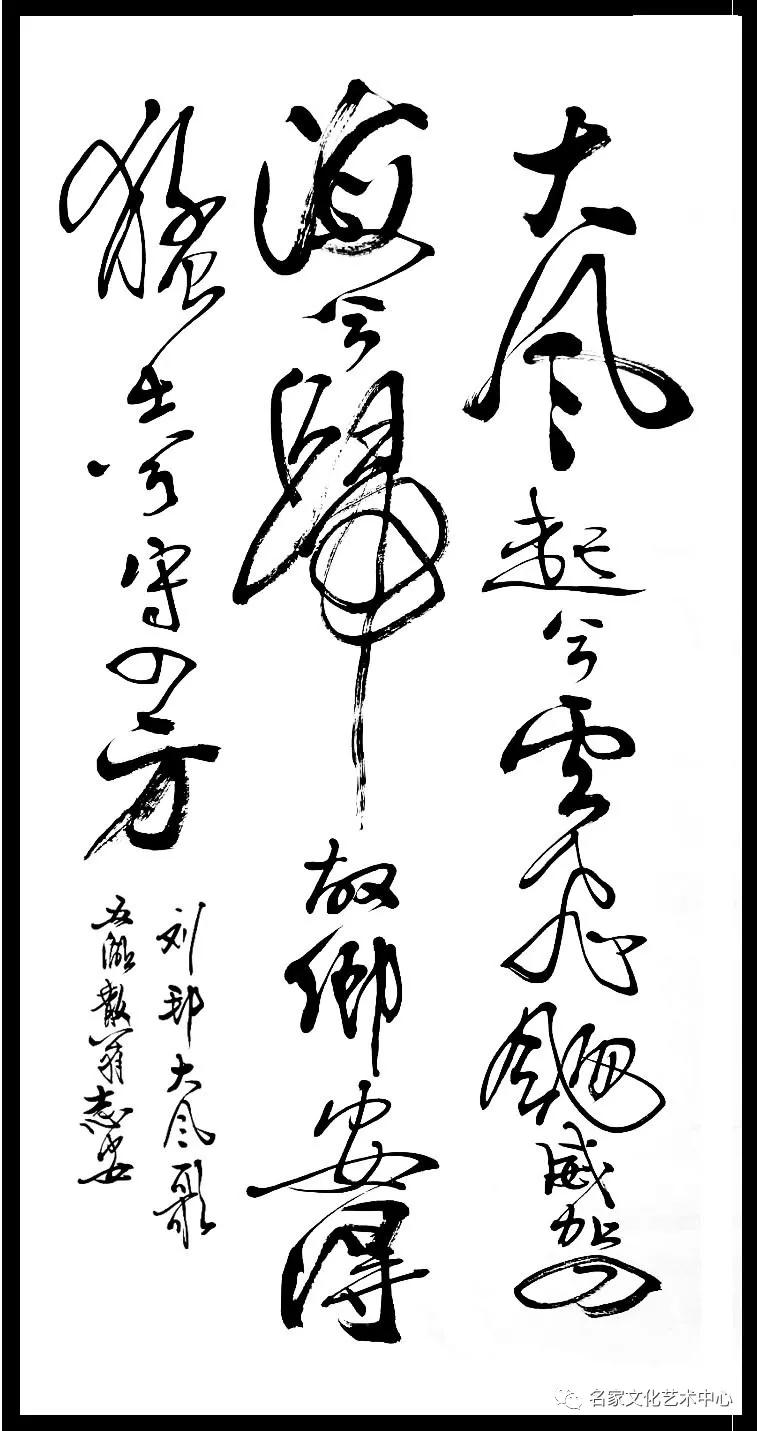 大风起兮雲飛颺威加四
海兮歸故鄉安得
猛士兮守四方
刘邦大风歌
五湖散翁志安
名家文化艺术中心